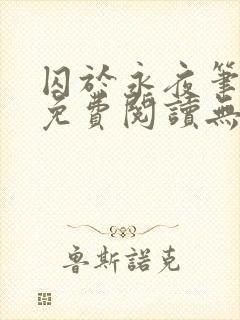 囚於永夜筆
免費閱讀無
魯斯諾克